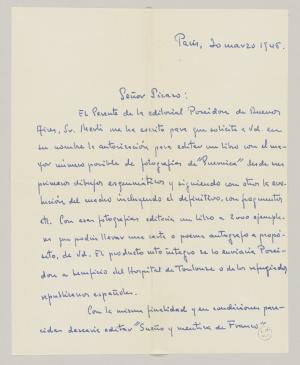 París, 20 marzo 1946.
Señor Picasso:
El Gerente de la editorial Poseidon de Buenos
Aires, Sr. Merli me ha escrito para que solicite a Vd. en
su nombre la autorización para editar un libro con el ma-
yor número posible de fotografías de "Guernica" desde sus
primeros dibujos esquemáticos y siguiendo con otros la evo-
lución del mismo incluyendo el definitivo, con fragmentos
etc. Con esas fotografías editaria un libro a 2000 ejempla-
res que podría llevar una carta o poema autógrafo a propó-
sito, de Vd. El producto neto íntegro se lo enviaría Posei-
don a beneficio del Hospital de Toulouse o de los refugiados
republicanos españoles.
Con la misma finalidad y en condiciones pare-
cidas desearía editar "Sueño y mentira de Franco"